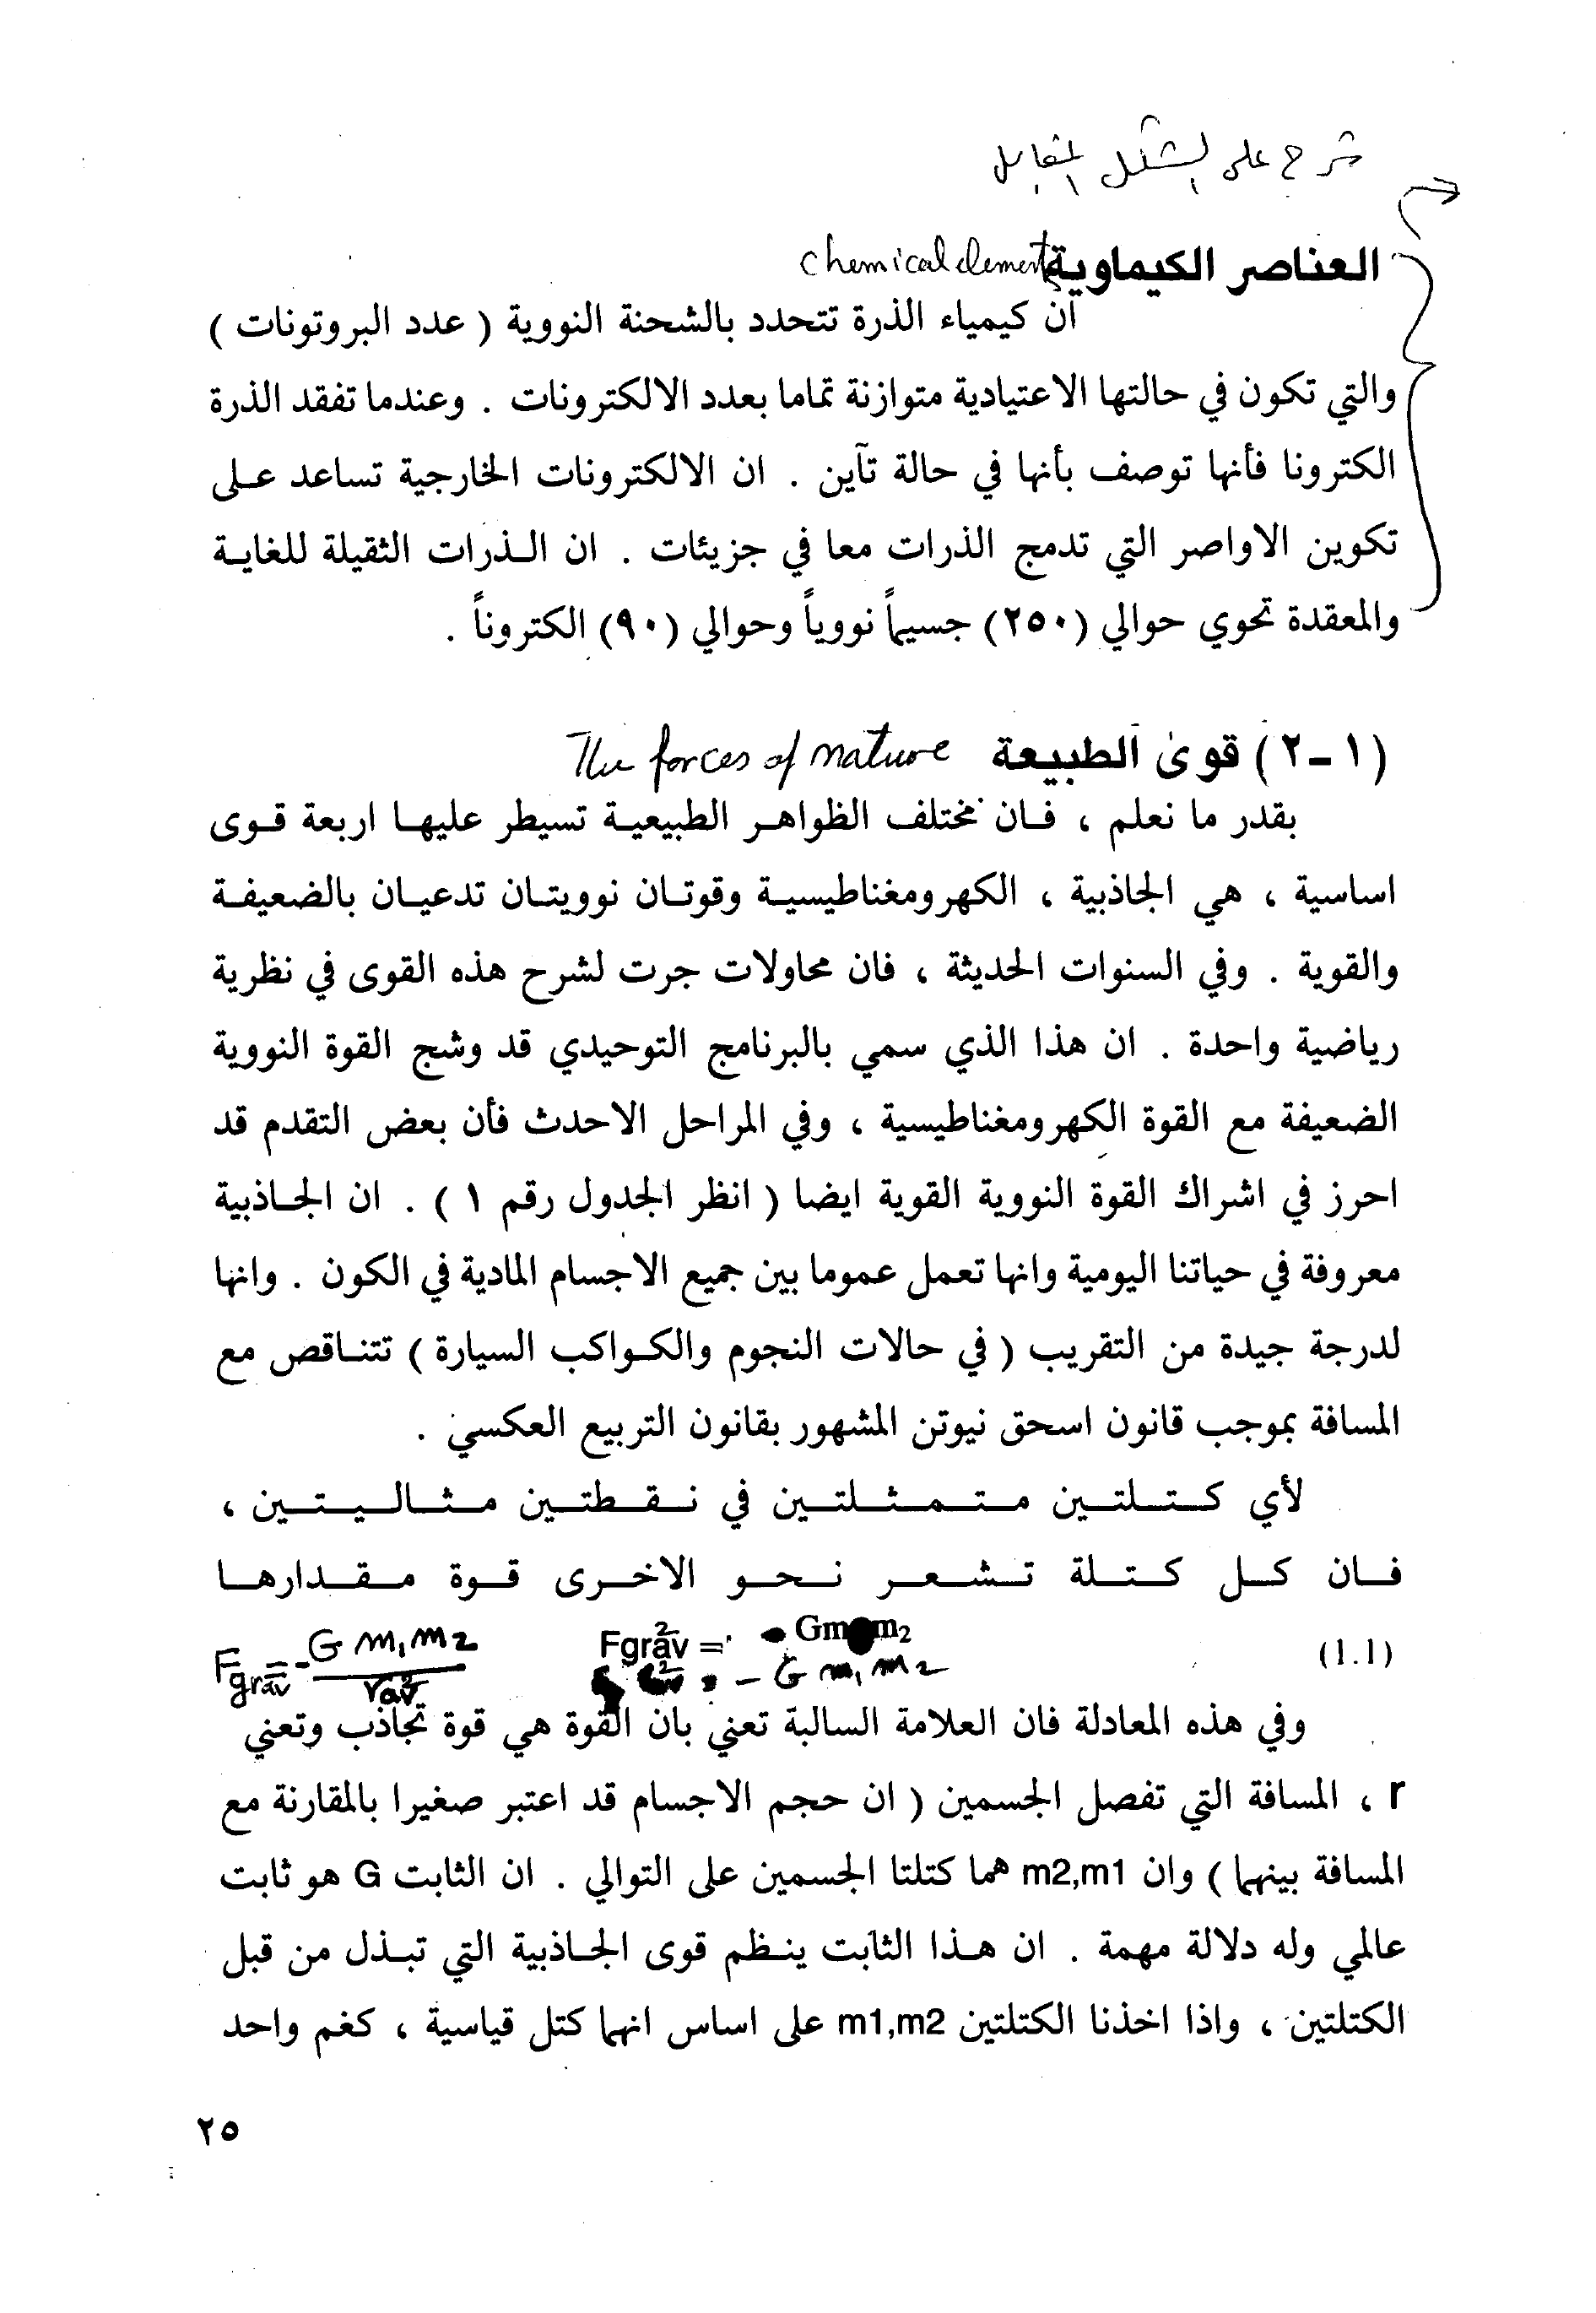 شرح على الشكل المقابل
العناصر الكيماوية chemical elements
ان كيمياء الذرة تتحدد بالشحنة النووية ( عدد البروتونات )
والتي تكون في حالتها الاعتيادية متوازنة تماما بعدد الالكترونات . وعندما تفقد الذرة
الكترونا فأنها توصف بأنها في حالة تآين . ان الالكترونات الخارجية تساعد على
تكوين الاواصر التي تدمج الذرات معا في جزيئات . ان الذرات الثقيلة للغاية
والمعقدة تحوي حوالي (٢٥٠) جسيماً نووياً وحوالي (٩٠) الكتروناً .
(١-٢) قوى الطبيعة The forces of nature
بقدر ما نعلم ، فان مختلف الظواهر الطبيعية تسيطر عليها اربعة قوى
اساسية ، هي الجاذبية ، الكهرومغناطيسية وقوتان نوويتان تدعيان بالضعيفة
والقوية . وفي السنوات الحديثة ، فان محاولات جرت لشرح هذه القوى في نظرية
رياضية واحدة . ان هذا الذي سمي بالبرنامج التوحيدي قد وشج القوة النووية
الضعيفة مع القوة الكهرومغناطيسية ، وفي المراحل الاحدث فأن بعض التقدم قد
احرز في اشراك القوة النووية القوية ايضا ( انظر الجدول رقم ١ ) . ان الجاذبية
معروفة في حياتنا اليومية وانها تعمل عموما بين جميع الاجسام المادية في الكون . وانها
لدرجة جيدة من التقريب ( في حالات النجوم والكواكب السيارة ) تتناقص مع
المسافة بموجب قانون اسحق نيوتن المشهور بقانون التربيع العكسي .
لأي كتلتين متمثلتين في نقطتين مثاليتين ،
فان كل كتلة تشعر نحو الاخرى قوة مقدارها
(1.1) Fgrav = Gm m2
- G m1 m2
Fgrav = - G m1 m2
وفي هذه المعادلة فان العلامة السالبة تعني بان القوة هي قوة تجاذب وتعني
r ، المسافة التي تفصل الجسمين ( ان حجم الاجسام قد اعتبر صغيرا بالمقارنة مع
المسافة بينهما ) وان m2,m1 هما كتلتا الجسمين على التوالي . ان الثابت G هو ثابت
عالمي وله دلالة مهمة . ان هذا الثابت ينظم قوى الجاذبية التي تبذل من قبل
الكتلتين ، واذا اخذنا الكتلتين m1,m2 على اساس انهما كتل قياسية ، كغم واحد
٢٥